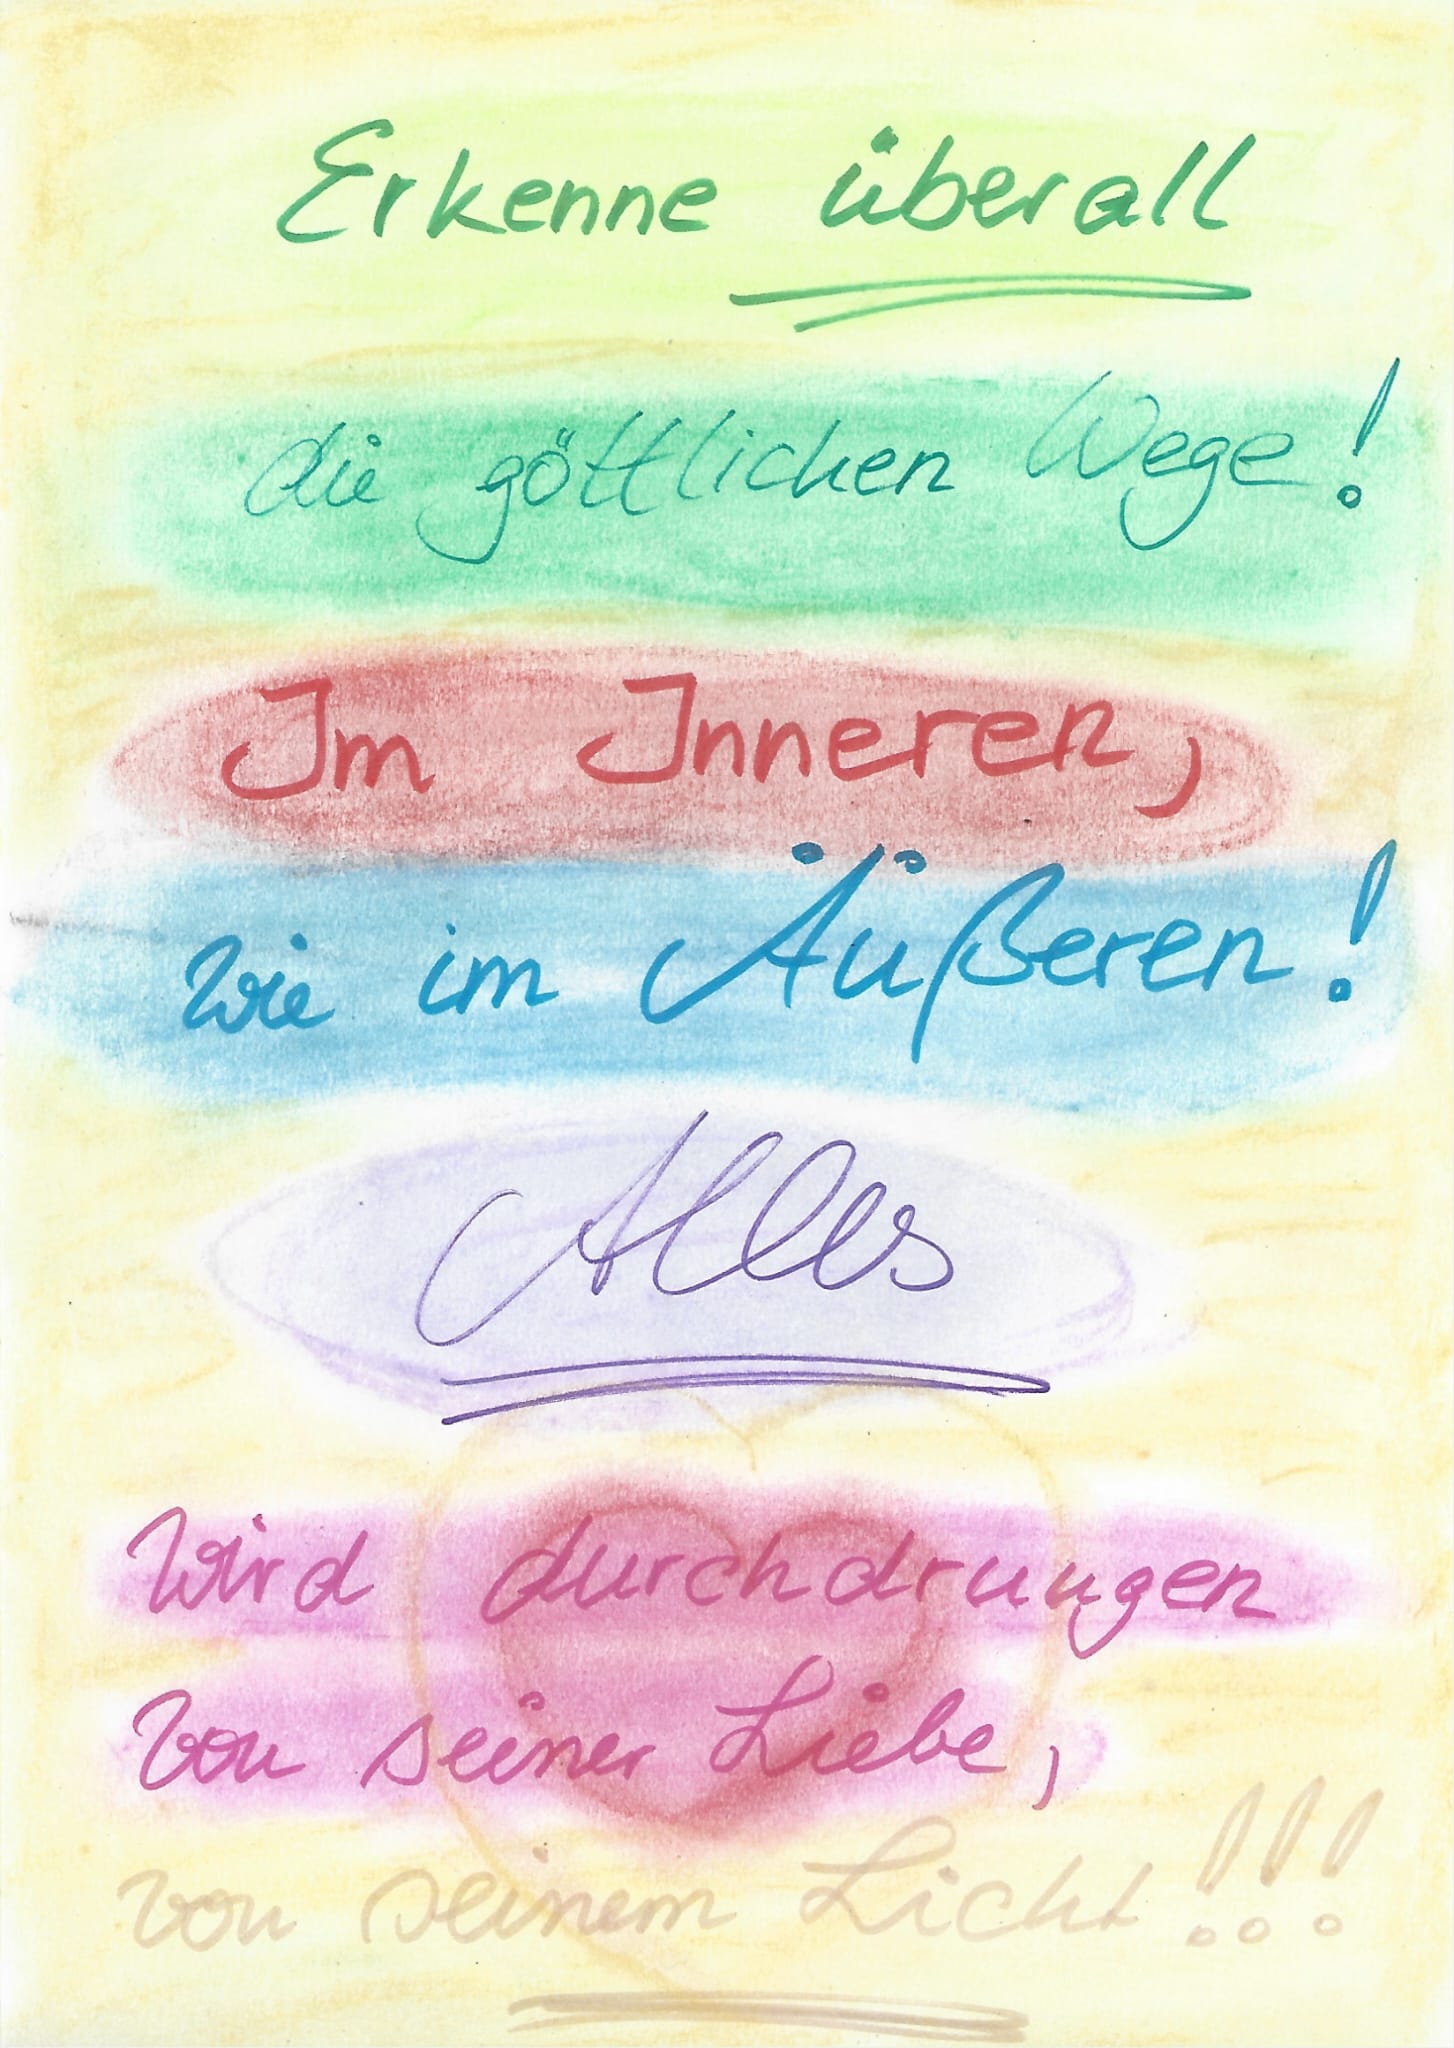 Erkenne überall
die göttlichen Wege!
Im Inneren,
wie im Äußeren!
Alles
wird durchdrungen
von seiner Liebe,
von seinem Licht!!!